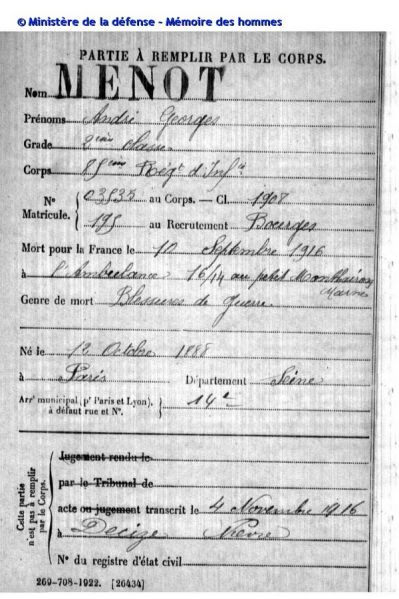 © Ministère de la défense - Mémoire des hommes
PARTIE À REMPLIR PAR LE CORPS.
Nom MENOT
Prénoms André Georges
Grade 2ème classe
Corps 85ème Régt d'Infie
N° Matricule. 03535 au Corps. — Cl. 1908
195 au Recrutement Bourges
Mort pour la France le 10 Septembre 1916
à l'Ambulance 16/14 au petit Monthairon
Marne
Genre de mort Blessures de guerre
Né le 12 Octobre 1888
à Paris Département Seine
Arrt municipal (pr Paris et Lyon), à défaut rue et N°. 14e
Cette partie n'est pas à remplir par le Corps.
Jugement rendu le
par le Tribunal de
acte ou jugement transcrit le 4 Novembre 1916
à Decize Nièvre
N° du registre d'état civil
269-708-1922. [26434]